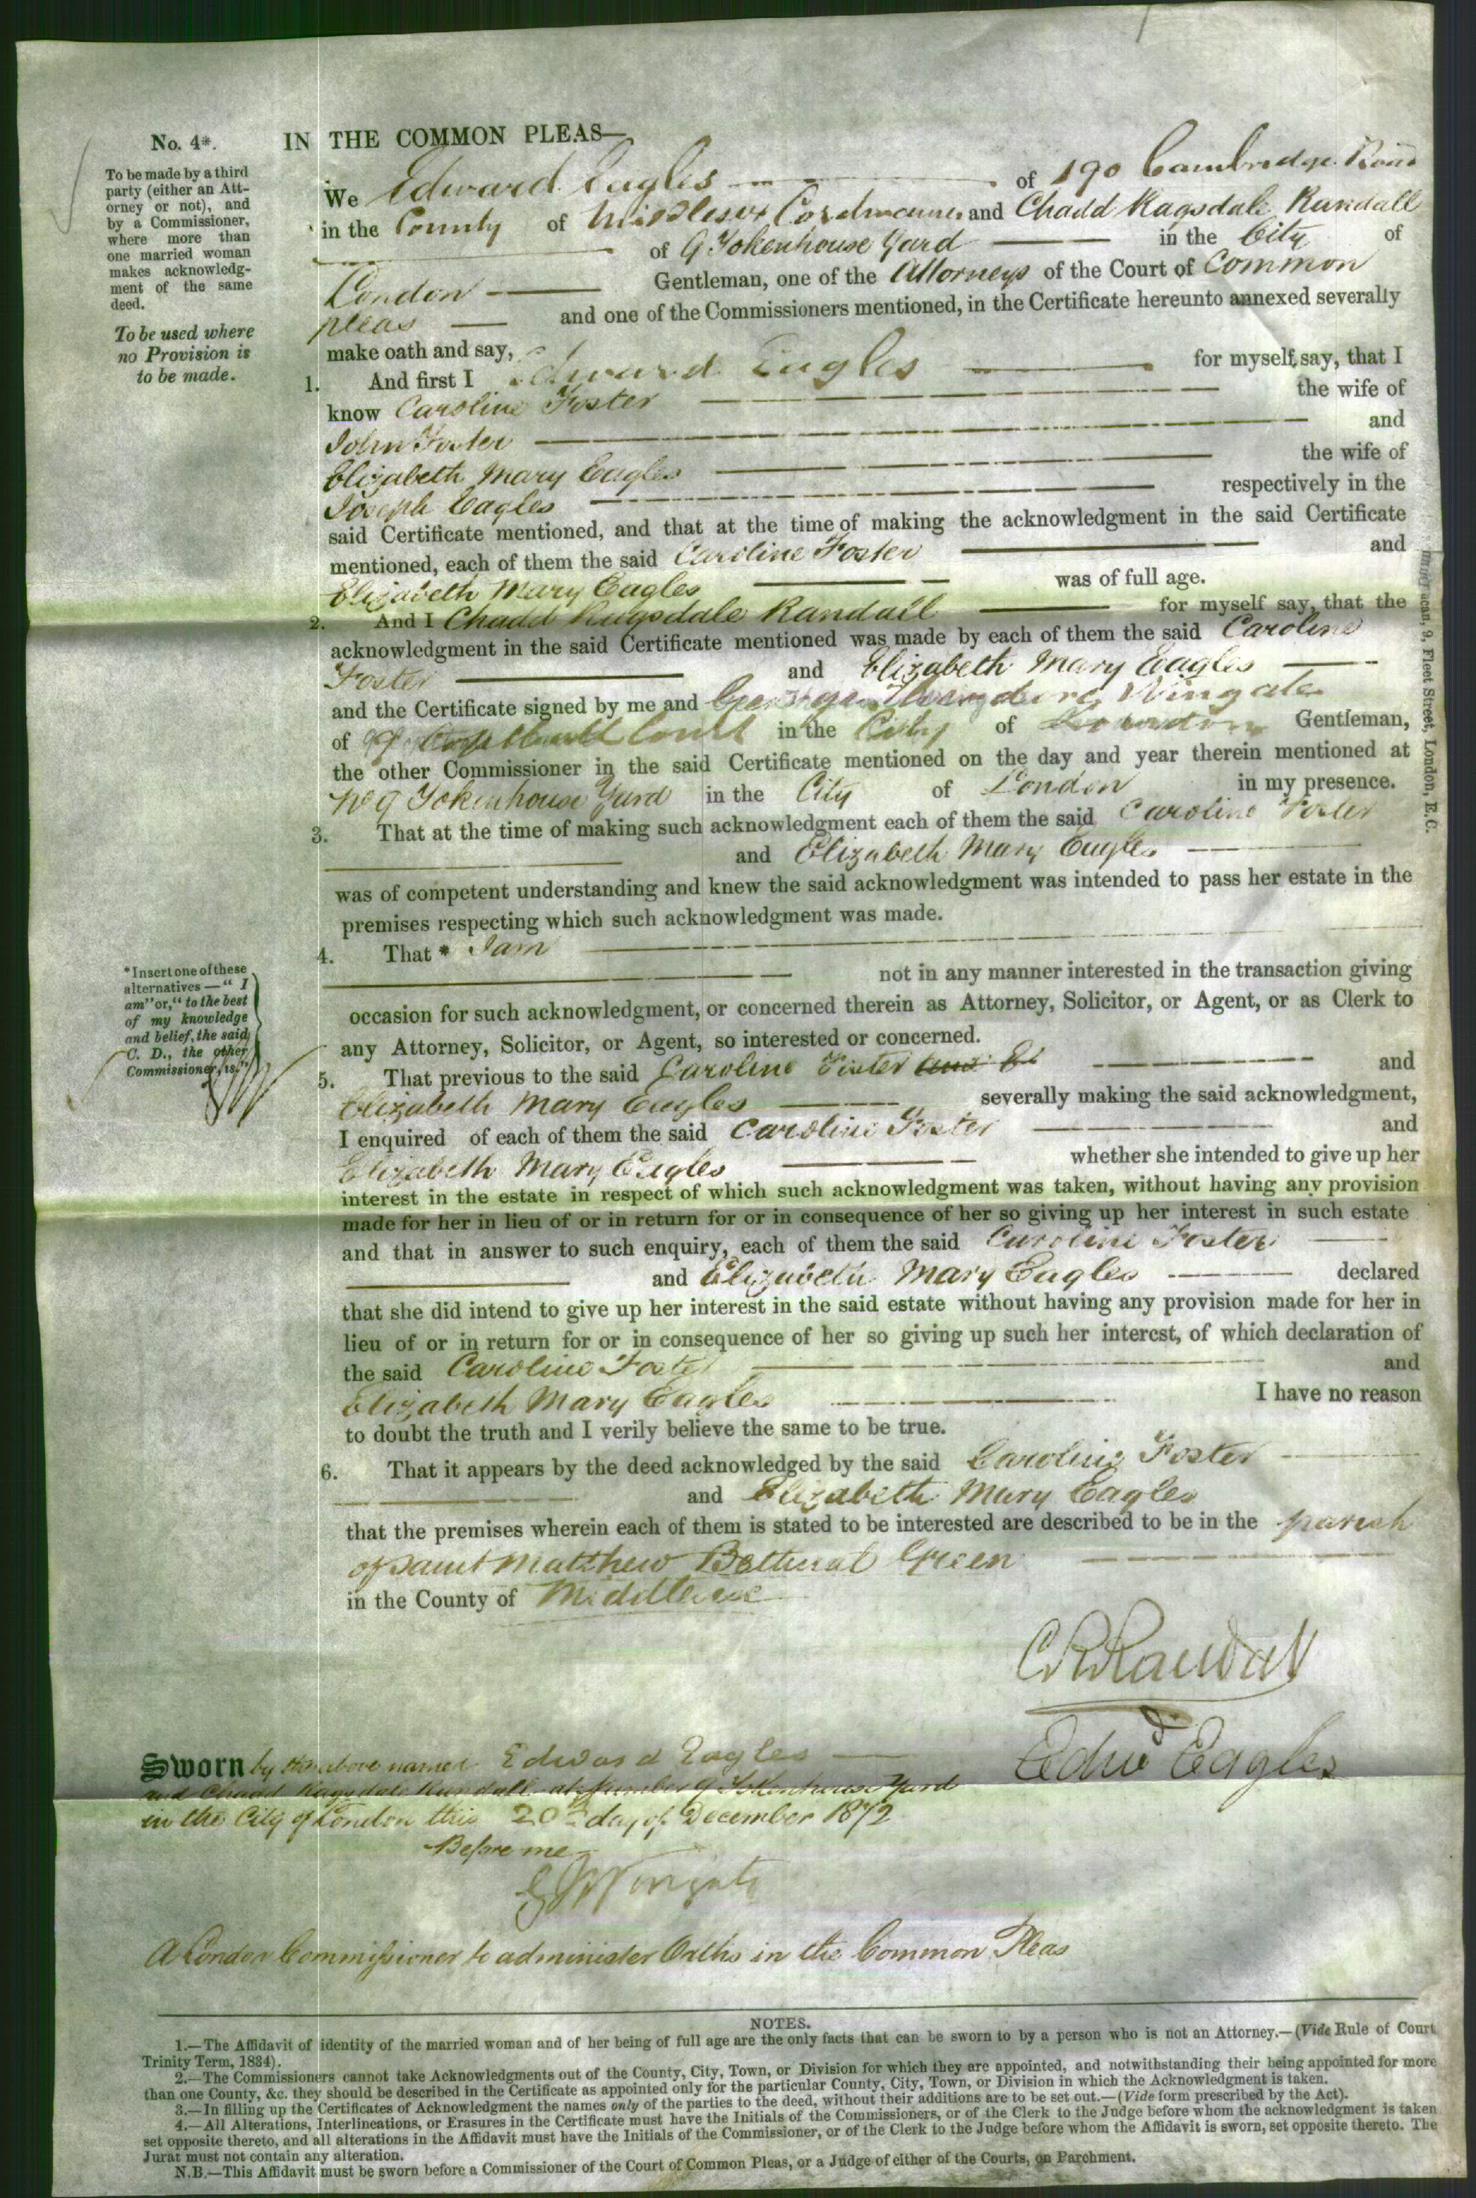 No. 4*.
To be made by a third
party (either an Att-
orney or not), and
by a Commissioner,
where more than
one married woman
makes acknowledg-
ment of the same
deed.
To be used where
no Provision is
to be made.
IN THE COMMON PLEAS—
We Edward Eagles of 190 Cambridge Road
in the County of Middlesex Cordwainer and Chadd Ragsdale Randall
of 9 Tokenhouse Yard in the City of
London Gentleman, one of the Attorneys of the Court of Common
pleas and one of the Commissioners mentioned, in the Certificate hereunto annexed severally
make oath and say,
1. And first I Edward Eagles for myself, say, that I
know Caroline Foster the wife of
John Foster and
Elizabeth Mary Eagles the wife of
Joseph Eagles respectively in the
said Certificate mentioned, and that at the time of making the acknowledgment in the said Certificate
mentioned, each of them the said Caroline Foster and
Elizabeth Mary Eagles was of full age.
2. And I Chadd Ragsdale Randall for myself say, that the
acknowledgment in the said Certificate mentioned was made by each of them the said Caroline
Foster and Elizabeth Mary Eagles
and the Certificate signed by me and George Wingate
of 9 Copthall Court in the City of London Gentleman,
the other Commissioner in the said Certificate mentioned on the day and year therein mentioned at
No 9 Tokenhouse Yard in the City of London in my presence.
3. That at the time of making such acknowledgment each of them the said Caroline Foster
and Elizabeth Mary Eagles
was of competent understanding and knew the said acknowledgment was intended to pass her estate in the
premises respecting which such acknowledgment was made.
4. That * I am
not in any manner interested in the transaction giving
occasion for such acknowledgment, or concerned therein as Attorney, Solicitor, or Agent, or as Clerk to
any Attorney, Solicitor, or Agent, so interested or concerned.
*Insert one of these
alternatives—"I
am" or, "to the best
of my knowledge
and belief, the said
C. D., the other
Commissioner, is."
5. That previous to the said Caroline Foster and El and
Elizabeth Mary Eagles severally making the said acknowledgment,
I enquired of each of them the said Caroline Foster and
Elizabeth Mary Eagles whether she intended to give up her
interest in the estate in respect of which such acknowledgment was taken, without having any provision
made for her in lieu of or in return for or in consequence of her so giving up her interest in such estate
and that in answer to such enquiry, each of them the said Caroline Foster
and Elizabeth Mary Eagles declared
that she did intend to give up her interest in the said estate without having any provision made for her in
lieu of or in return for or in consequence of her so giving up such her interest, of which declaration of
the said Caroline Foster and
Elizabeth Mary Eagles I have no reason
to doubt the truth and I verily believe the same to be true.
6. That it appears by the deed acknowledged by the said Caroline Foster
and Elizabeth Mary Eagles
that the premises wherein each of them is stated to be interested are described to be in the parish
of Saint Matthew Bethnal Green
in the County of Middlesex
C R Randall
Edwd Eagles
Sworn by the above named Edward Eagles
and Chadd Ragsdale Randall at Number 9 Tokenhouse Yard
in the City of London this 20th day of December 1872
Before me
G Wingate
A London Commissioner to administer Oaths in the Common Pleas
9, Fleet Street, London, E.C.
NOTES.
1.—The Affidavit of identity of the married woman and of her being of full age are the only facts that can be sworn to by a person who is not an Attorney.—(Vide Rule of Court
Trinity Term, 1834).
2.—The Commissioners cannot take Acknowledgments out of the County, City, Town, or Division for which they are appointed, and notwithstanding their being appointed for more
than one County, &c. they should be described in the Certificate as appointed only for the particular County, City, Town, or Division in which the Acknowledgment is taken.
3.—In filling up the Certificates of Acknowledgment the names only of the parties to the deed, without their additions are to be set out.—(Vide form prescribed by the Act).
4.—All Alterations, Interlineations, or Erasures in the Certificate must have the Initials of the Commissioners, or of the Clerk to the Judge before whom the acknowledgment is taken
set opposite thereto, and all alterations in the Affidavit must have the Initials of the Commissioner, or of the Clerk to the Judge before whom the Affidavit is sworn, set opposite thereto. The
Jurat must not contain any alteration.
N.B.—This Affidavit must be sworn before a Commissioner of the Court of Common Pleas, or a Judge of either of the Courts, on Parchment.